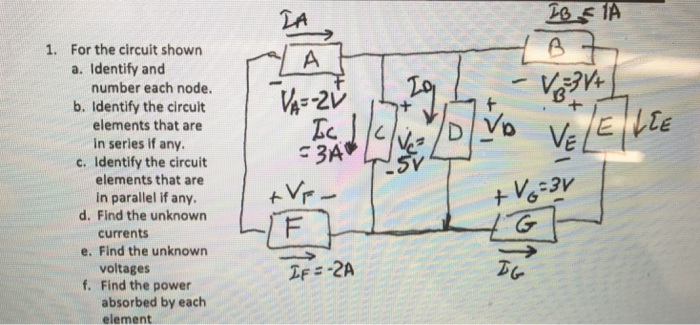 1. For the circuit shown
a. Identify and
number each node.
b. Identify the circuit
elements that are
in series if any.
c. Identify the circuit
elements that are
in parallel if any.
d. Find the unknown
currents
e. Find the unknown
voltages
f. Find the power
absorbed by each
element
IA
A
- +
VA=-2V
IB = 1A
B
- VB=3V+
IC
= 3A
C
+
VC=
-5V
-
ID
D
+
VD
-
+
VE
-
E
IE
+ VF -
F
IF = -2A
+ VG=3V
-
G
IG